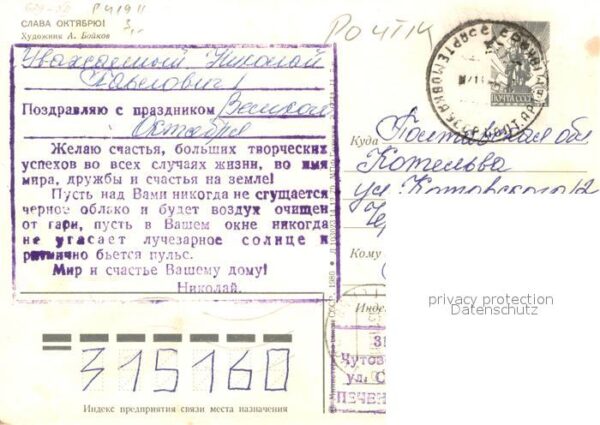 СЛАВА ОКТЯБРЮ!
Художник А. Бойков
Уважаемый Николай
Павлович!
Поздравляю с праздником Великого
Октября
Желаю счастья, больших творческих
успехов во всех случаях жизни, во имя
мира, дружбы и счастья на земле!
Пусть над Вами никогда не сгущается
черное облако и будет воздух очищен
от гари, пусть в Вашем окне никогда
не угасает лучезарное солнце и
ритмично бьется пульс.
Мир и счастье Вашему дому!
Николай.
315160
Индекс предприятия связи места назначения
ПОЧТА СССР
Куда Полтавская обл
Котельва
ул Котовского 12
Кому
Индекс
Чутов
ул. С
ПЕЧЕН
privacy protection
Datenschutz